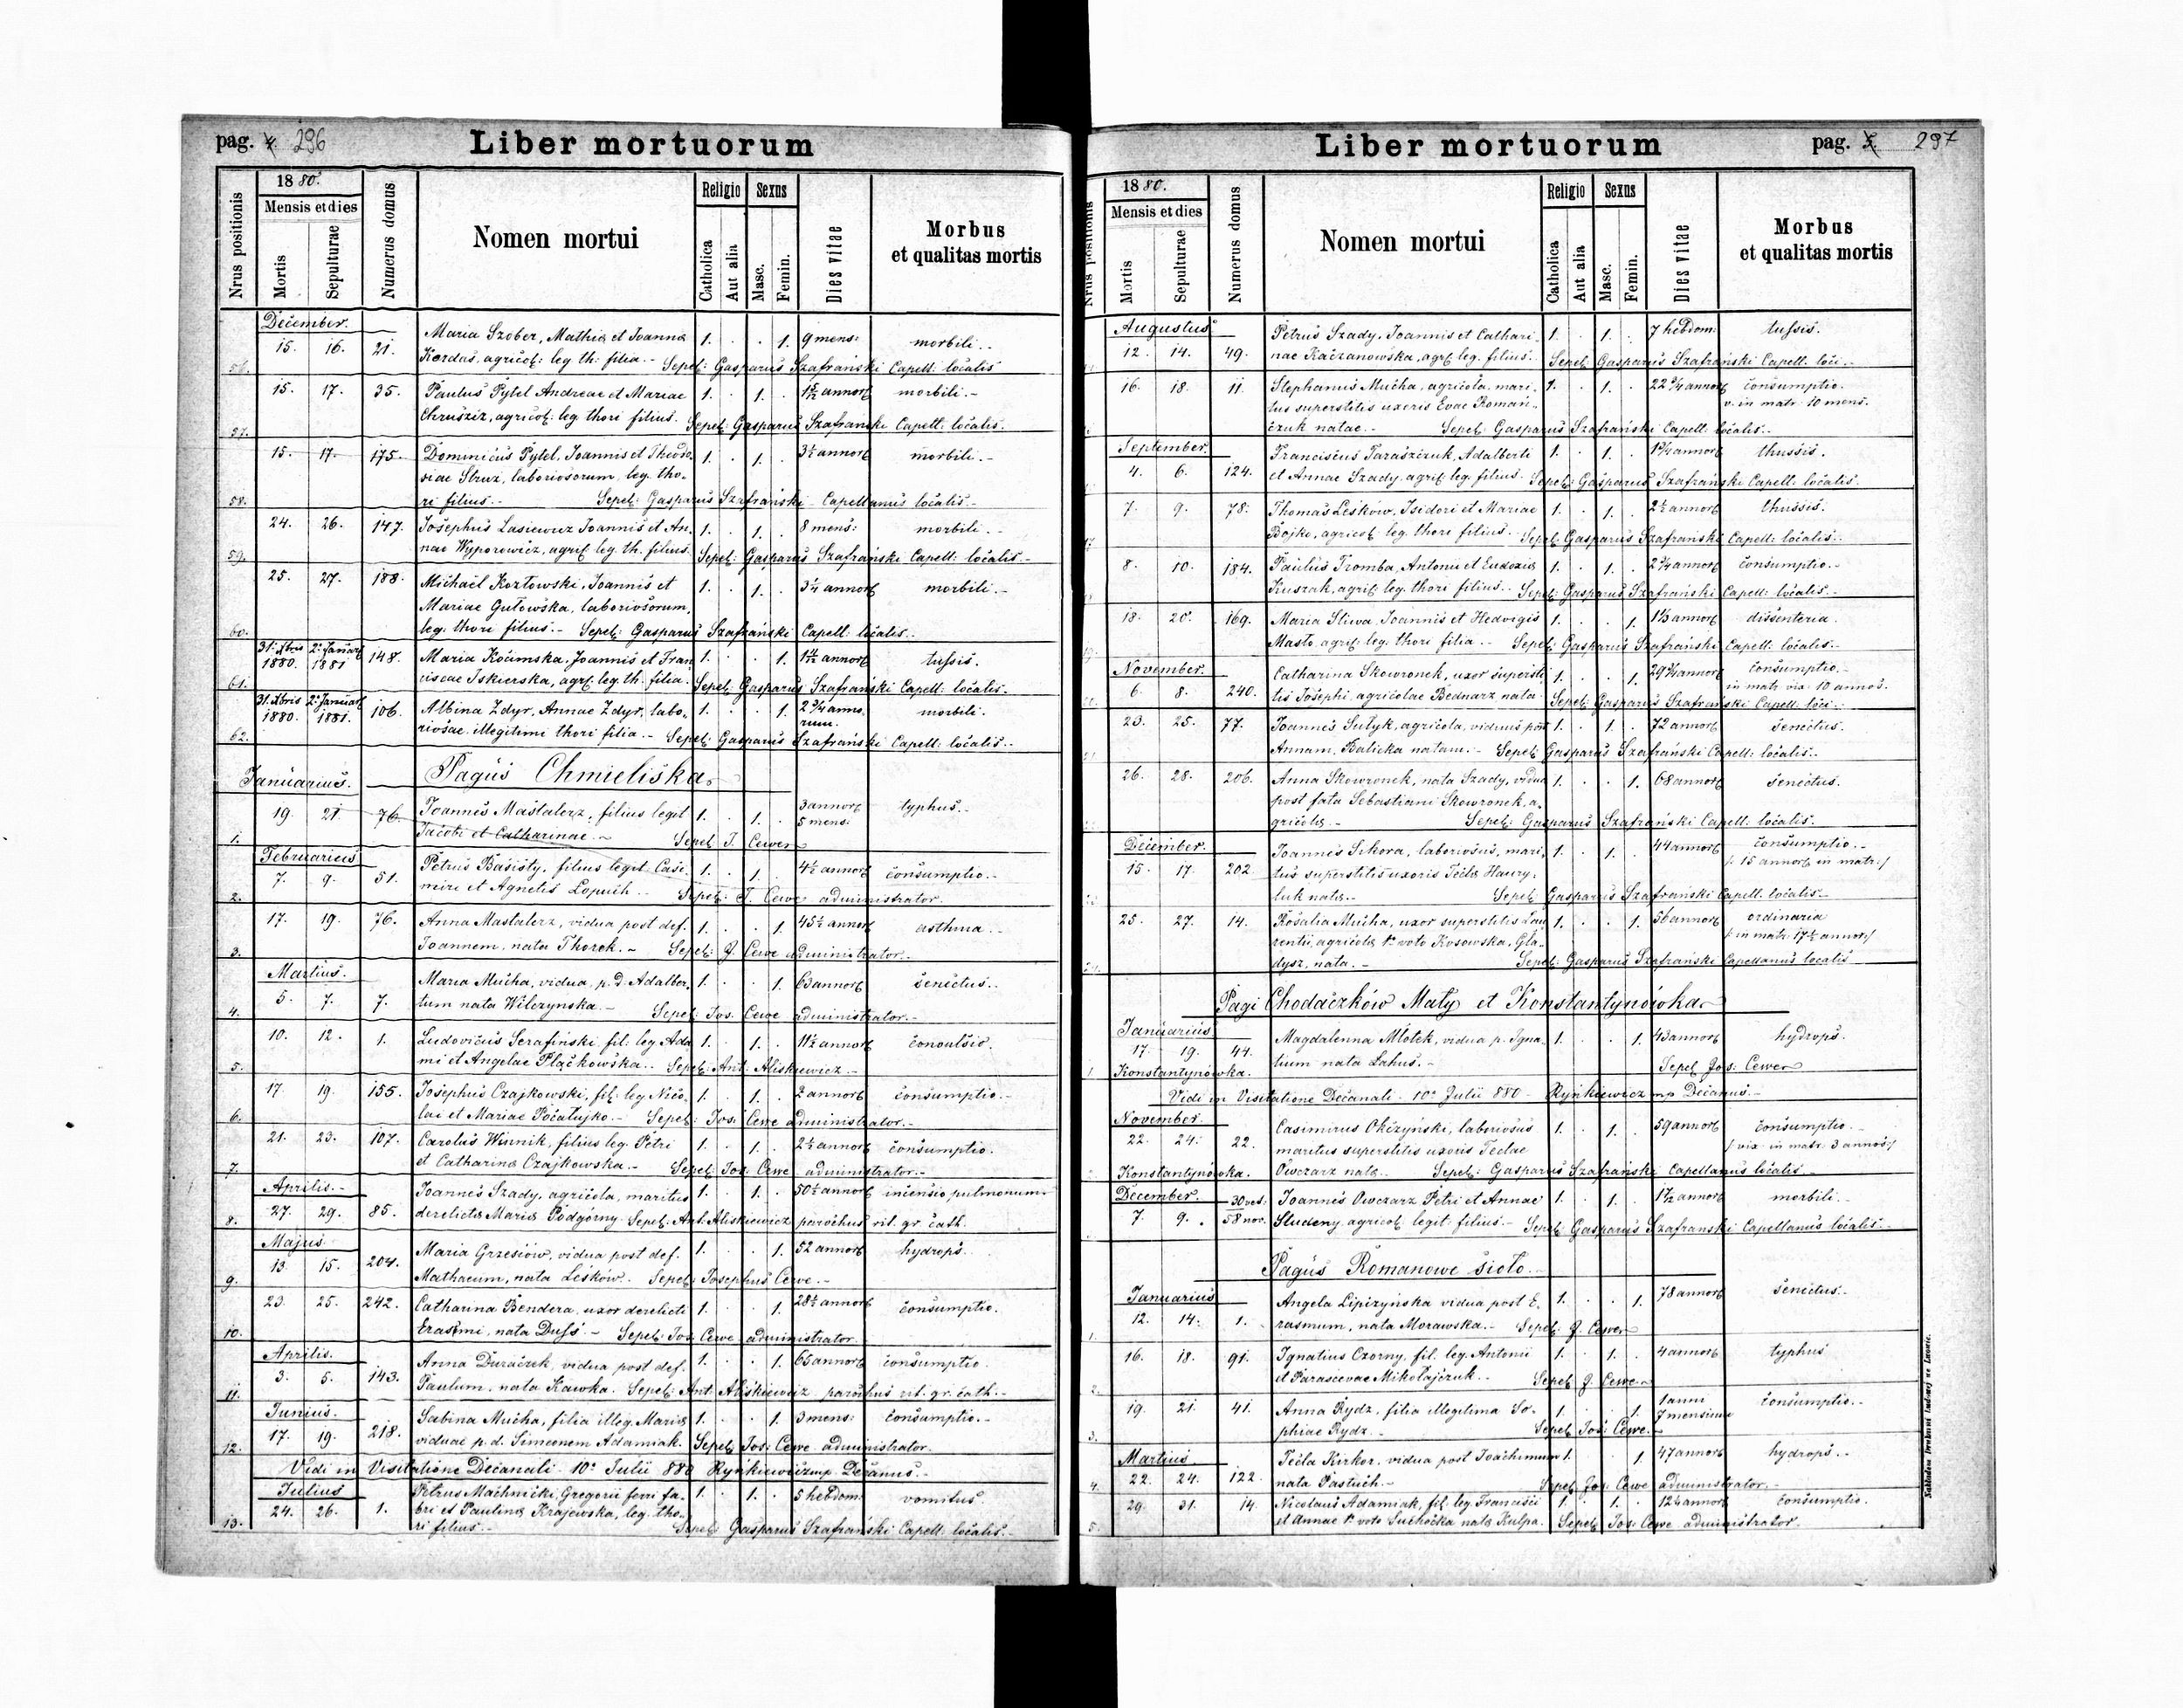 pag. 4. 296
Liber mortuorum
Nrus positionis
1880.
Mensis et dies
Mortis
Sepulturae
Numerus domus
Nomen mortui
Religio
Catholica
Aut alia
Sexus
Masc.
Femin.
Dies vitae
Morbus
et qualitas mortis
December.
15. 16. 21. Maria Szober, Mathiæ et Joannæ 1. . . 1. 9 mens: morbili.-
56. Kordas, agricol: leg th: filia.- Sepel: Gasparus Szafrański Capell: localis
15. 17. 35. Paulus Pytel Andreae et Mariae 1. . 1. . morbili.-
57. agricol: leg. thori filius. Sepel: Gasparus Szafrański Capell: localis.
15. 17. 175. Dominicus Pytel, Joannis et Theodo- 1. . 1. . 3½ annor morbili.-
siae Struz, laboriosorum, leg. tho-
58. ri filius.- Sepel: Gasparus Szafrański Capellanus localis.-
24. 26. 147. Josephus Lasiewicz Joannis et An- 1. . 1. . 8 mens: morbili.-
59. nae Wyporowicz, agric: leg. th. filius. Sepel: Gasparus Szafrański Capell: localis.-
25. 27. 188. Michael Kozłowski, Joannis et 1. . 1. . 3¼ annor morbili.-
Mariae Gutowska, laboriosorum,
60. leg. thori filius.- Sepel: Gasparus Szafrański Capell: localis.
31. Xbris 1880. 2. Januar 1881 148. Maria Kocimska, Joannis et Fran- 1. . . 1. annor tussis.
61. ciscae Iskierska, agr: leg. th. filia. Sepel: Gasparus Szafrański Capell: localis.
31. Xbris 1880. 2. Januar 1881. 106. Albina Zdyr, Annae Zdyr, labo- 1. . . 1. 2¾ anno- rum. morbili.
62. riosae, illegitimi thori filia.- Sepel: Gasparus Szafrański Capell: localis.
Pagus Chmieliska
Januarius.
19. 21. 76. Joannes Mastalerz, filius legit 1. . 1. . 3 annor 5 mens: typhus.-
1. Jacobi et Catharinae.- Sepel J. Cewe
Februarius
7. 9. 51. Petrus Basisty, filius legit. Casi- 1. . 1. . 4½ annor consumptio.-
2. miri et Agnetis Łopuch.- Sepel: J. Cewe administrator.
17. 19. 76. Anna Mastalerz, vidua post def. 1. . . 1. 45½ annor asthma.-
3. Joannem, nata Thorek.- Sepel: J. Cewe administrator.-
Martius.
5. 7. 7. Maria Mucha, vidua, p. D. Adalber- 1. . . 1. 63 annor senectus.-
4. tum nata Wilczynska.- Sepel: Jos. Cewe administrator.-
10. 12. 1. Ludovicus Serafiński, fil: leg. Ada- 1. . 1. . 11½ annor
5. mi et Angelae Plackowska.. Sepel: Ant: Aliskiewicz.-
17. 19. 155. Josephus Czajkowski, fil: leg. Nico- 1. . 1. . 2 annor consumptio.-
6. lai et Mariae Pocałujko.- Sepel: Jos: Cewe administrator.-
21. 23. 107. Carolus Winnik, filius leg. Petri 1. . 1. . 2½ annor consumptio.
7. et Catharinæ Czajkowska.- Sepel: Jos: Cewe administrator.-
Aprilis.-
27. 29. 85. Joannes Szady, agricola, maritus 1. . 1. . 50½ annor incensio pulmonum.
8. derelictæ Mariæ Podgórny. Sepel: Ant. Aliskiewicz parochus rit. gr. cath.
Majus
13. 15. 204. Maria Grzesiów, vidua post def. 1. . . 1. 52 annor hydrops.
9. Mathaeum, nata Leśków. Sepel: Josephus Cewe.-
23. 25. 242. Catharina Bendera, uxor derelicti 1. . . 1. 28½ annor consumptio.
10. Erasmi, nata Duss.- Sepel: Jos: Cewe administrator.
Aprilis.
3. 5. 143. Anna Duraczek, vidua post def. 1. . . 1. 65 annor consumptio.
11. Paulum, nata Kawka. Sepel: Ant: Aliskiewicz parochus rit. gr. cath.-
Junius.
17. 19. 218. Sabina Mucha, filia illeg. Mariæ 1. . . 1. 3 mens: consumptio.-
12. viduae p. d. Simeonem Adamiak. Sepel: Jos: Cewe administrator.
Vidi in Visitatione Decanali 10ª Julii 880 Rynkiewicz mp Decanus.-
Julius
24. 26. 1. Petrus Machnicki, Gregorii ferri fa- 1. . 1. . 5 hebdom: vomitus
bri et Paulinæ Krajewska, leg. tho-
13. ri filius.- Sepel: Gasparus Szafrański Capell: localis.-
Liber mortuorum
pag. 5. 297
Nrus positionis
1880.
Mensis et dies
Mortis
Sepulturae
Numerus domus
Nomen mortui
Religio
Catholica
Aut alia
Sexus
Masc.
Femin.
Dies vitae
Morbus
et qualitas mortis
Augustus
12. 14. 49. Petrus Szady, Joannis et Cathari- 1. . 1. . 7 hebdom: tussis.
nae Kaczanowska, agr: leg. filius. Sepel: Gasparus Szafrański Capell: loci.-
16. 18. 11. Stephanus Mucha, agricola, mari- 1. . 1. . 22¾ annor consumptio.
tus superstitis uxoris Evae Roman- v. in matr. 10 mens.
czuk natae.- Sepel: Gasparus Szafrański Capell: localis.-
September.
4. 6. 124. Franciscus Taraszczuk, Adalberti 1. . 1. . annor thussis.
et Annae Szady, agric: leg. filius. Sepel: Gasparus Szafrański Capell: localis.
7. 9. 78. Thomas Leśków, Isidori et Mariae 1. . 1. . 2½ annor thussis.
Bojko, agricol: leg. thori filius. Sepel: Gasparus Szafrański Capell: localis.
8. 10. 184. Paulus Tromba, Antonii et Eudoxiæ 1. . 1. . 2¾ annor consumptio.-
Kuszak, agric: leg. thori filius.- Sepel: Gasparus Szafrański Capell: localis.-
18. 20. 169. Maria Sliwa, Joannis et Hedvigis 1. . . 1. annor dissenteria.
Masło agric: leg. thori filia.- Sepel: Gasparus Szafrański Capell: localis.-
November.
6. 8. 240. Catharina Skowronek, uxor supersti- 1. . . 1. 29¾ annor consumptio.-
tis Josephi agricolae Bednarz nata. in matr. vix: 10 annos.
Sepel: Gasparus Szafrański Capell: loci.-
23. 25. 77. Joannes Sutyk, agricola, viduus post 1. . 1. . 72 annor senectus.
Annam, Balicka natam.- Sepel: Gasparus Szafrański Capell: localis.-
26. 28. 206. Anna Skowronek, nata Szady, vidua 1. . . 1. 68 annor senectus.
post fata Sebastiani Skowronek, a-
gricolæ.- Sepel: Gasparus Szafrański Capell: localis.
December.
15. 17. 202. Joannes Sikora, laboriosus, mari- 1. . 1. . 44 annor consumptio.-
tus superstitis uxoris Teclæ Hawry- /: 15 annor in matr:/
luk natæ.- Sepel: Gasparus Szafrański Capell: localis.-
25. 27. 14. Rosalia Mucha, uxor superstitis Lau- 1. . . 1. 56 annor ordinaria
rentii, agricolæ 1º voto Kosowska, Gła- /: in matr: 17½ annor:/
dysz, nata.- Sepel: Gasparus Szafrański Capellanus localis
Pagi Chodaczków Mały et Konstantynówka
Januarius
17. 19. 44. Magdalenna Młotek, vidua p. Igna- 1. . . 1. 43 annor hydrops.
1. Konstantynówka. tium nata Lahus.- Sepel Jos: Cewe
Vidi in Visitatione Decanali 10ª Julii 880 - Rynkiewicz mp Decanus.-
November
22. 24. 22. Casimirus Okczyński, laboriosus 1. . 1. . 59 annor consumptio.-
maritus superstitis uxoris Teclae /: vix. in matr. 3 annos:/
Konstantynówka. Owczarz natæ. Sepel: Gasparus Szafrański Capellanus localis
December.
7. 9. 30 vet: 58 nov. Joannes Owczarz Petri et Annae 1. . 1. . annor morbili.-
Studeny agricol: legit: filius.- Sepel: Gasparus Szafrański Capellanus localis.-
Pagus Romanowe sioło.-
Januarius
12. 14. 1. Angela Lipczyńska vidua post E- 1. . . 1. 78 annor senectus.-
1. rasmum, nata Morawska.- Sepel: J. Cewe
16. 18. 91. Ignatius Czorny, fil. leg. Antonii 1. . 1. . 4 annor typhus
2. et Parascevae Mikołajczuk.. Sepel J. Cewe
19. 21. 41. Anna Rydz, filia illegitima So- 1. . . 1. 1 anni 7 mensium consumptio.-
3. phiae Rydz.- Sepel Jos: Cewe.-
Martius
22. 24. 122. Tecla Kirker, vidua post Joachimum 1. . . 1. 47 annor hydrops.-
4. nata Pastuch.- Sepel: Jos: Cewe administrator.-
29. 31. 14. Nicolaus Adamiak, fil. leg. Francisci 1. . 1. . 12½ annor consumptio.
5. et Annae 1º voto Suchocka natæ Kulpa. Sepel: Jos: Cewe administrator.
Nakładem Drukarni Ludowej we Lwowie.